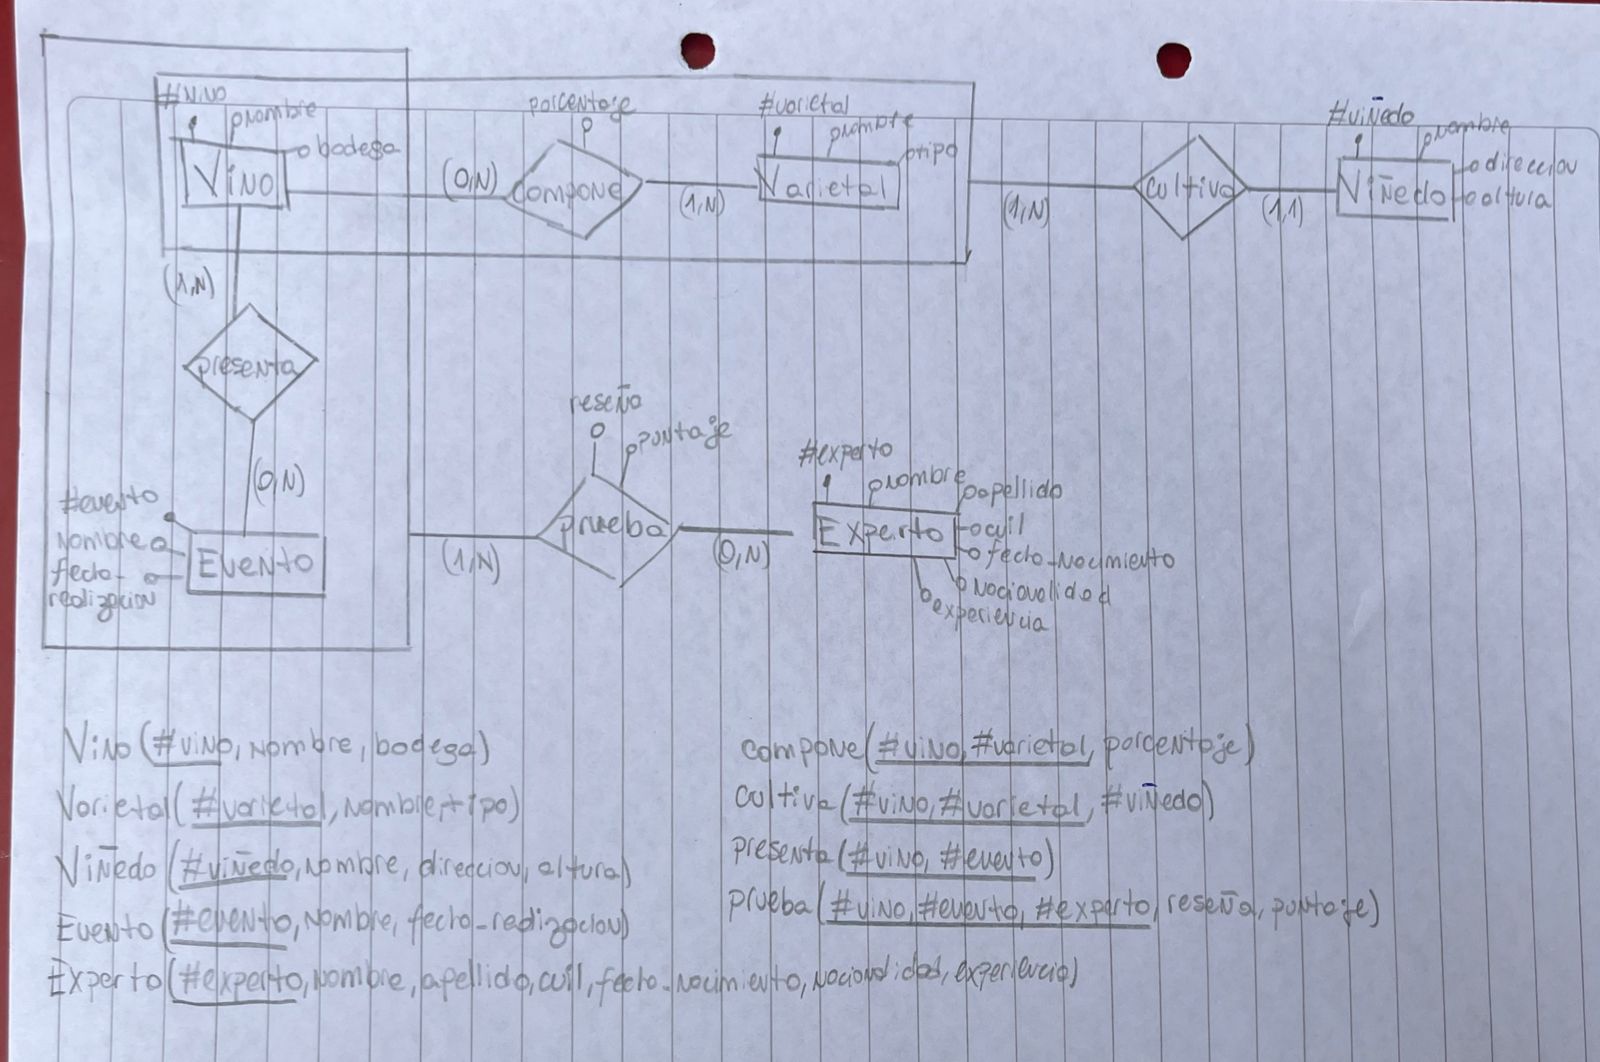 #vino
nombre
bodega
Vino
(0,N)
porcentaje
compone
(1,N)
#varietal
nombre
tipo
Varietal
(1,N)
cultiva
(1,1)
#viñedo
nombre
direccion
altura
Viñedo
(1,N)
presenta
(0,N)
#evento
nombre
fecha_
realizacion
Evento
(1,N)
reseña
puntaje
prueba
(0,N)
#experto
nombre
apellido
cuil
fecha_nacimiento
nacionalidad
experiencia
Experto
Vino (#vino, nombre, bodega)
Varietal (#varietal, nombre, tipo)
Viñedo (#viñedo, nombre, direccion, altura)
Evento (#evento, nombre, fecha_realizacion)
Experto (#experto, nombre, apellido, cuil, fecha_nacimiento, nacionalidad, experiencia)
compone (#vino, #varietal, porcentaje)
cultiva (#vino, #varietal, #viñedo)
presenta (#vino, #evento)
prueba (#vino, #evento, #experto, reseña, puntaje)